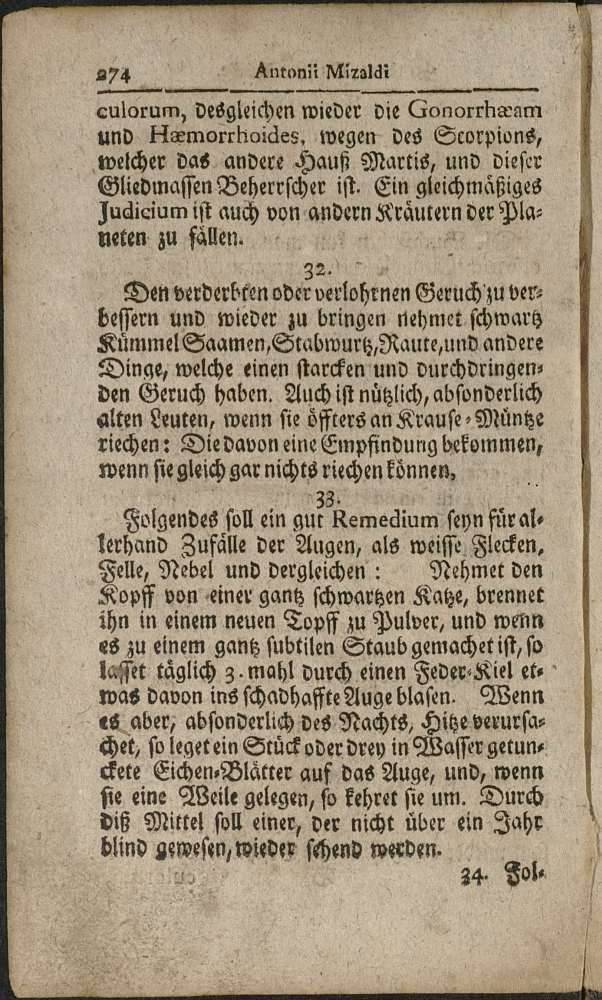 274 Antonii Mizaldi
culorum, desgleichen wieder die Gonorrhæam
und Hæmorrhoides, wegen des Scorpions,
welcher das andere Hauß Martis, und dieser
Gliedmassen Beherrscher ist. Ein gleichmäßiges
Judicium ist auch von andern Kräutern der Pla-
neten zu fällen.
32.
Den verderbten oder verlohrnen Geruch zu ver-
bessern und wieder zu bringen nehmet schwartz
Kümmel Saamen, Stabwurtz, Raute, und andere
Dinge, welche einen starcken und durchdringen-
den Geruch haben. Auch ist nützlich, absonderlich
alten Leuten, wenn sie öffters an Krause-Müntze
riechen: Die davon eine Empfindung bekommen,
wenn sie gleich gar nichts riechen können,
33.
Folgendes soll ein gut Remedium seyn für al-
lerhand Zufälle der Augen, als weisse Flecken,
Felle, Nebel und dergleichen: Nehmet den
Kopff von einer gantz schwartzen Katze, brennet
ihn in einem neuen Topff zu Pulver, und wenn
es zu einem gantz subtilen Staub gemachet ist, so
lasset täglich 3. mahl durch einen Feder-Kiel et-
was davon ins schadhaffte Auge blasen. Wenn
es aber, absonderlich des Nachts, Hitze verursa-
chet, so leget ein Stück oder drey in Wasser getun-
ckete Eichen-Blätter auf das Auge, und, wenn
sie eine Weile gelegen, so kehret sie um. Durch
diß Mittel soll einer, der nicht über ein Jahr
blind gewesen, wieder sehend werden.
34. Fol-